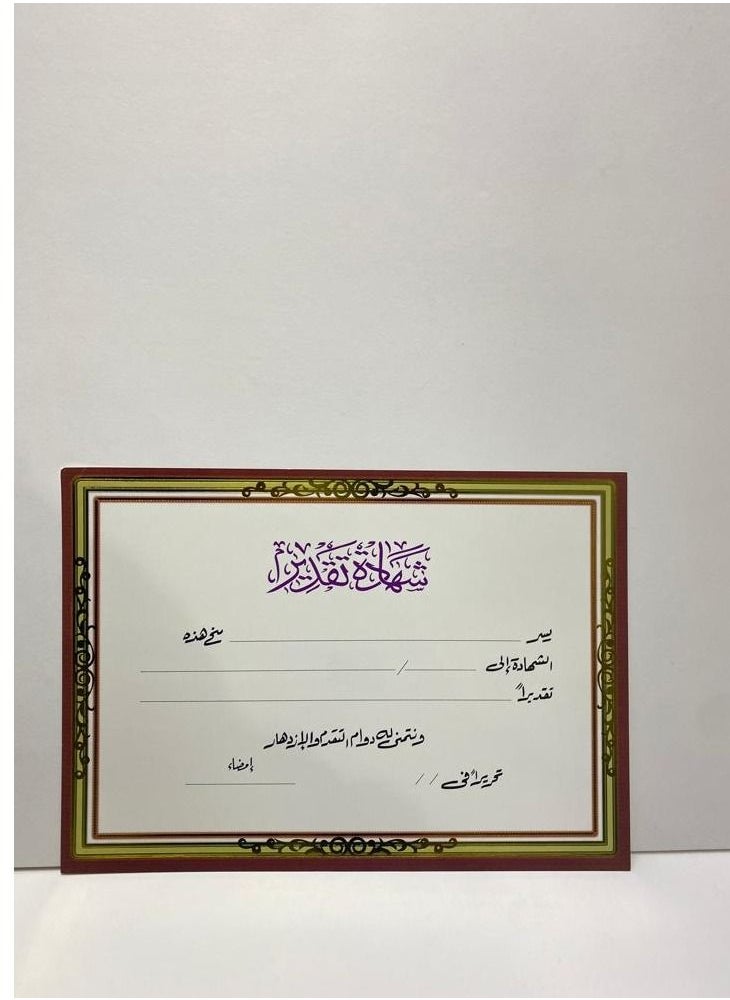 شهادة تقدير
يسر ______ منح هذه
الشهادة إلى ______ / ______
تقديراً ______
ونتمنى له دوام التقدم والإزدهار
إمضاء
تحريراً فى / / ______